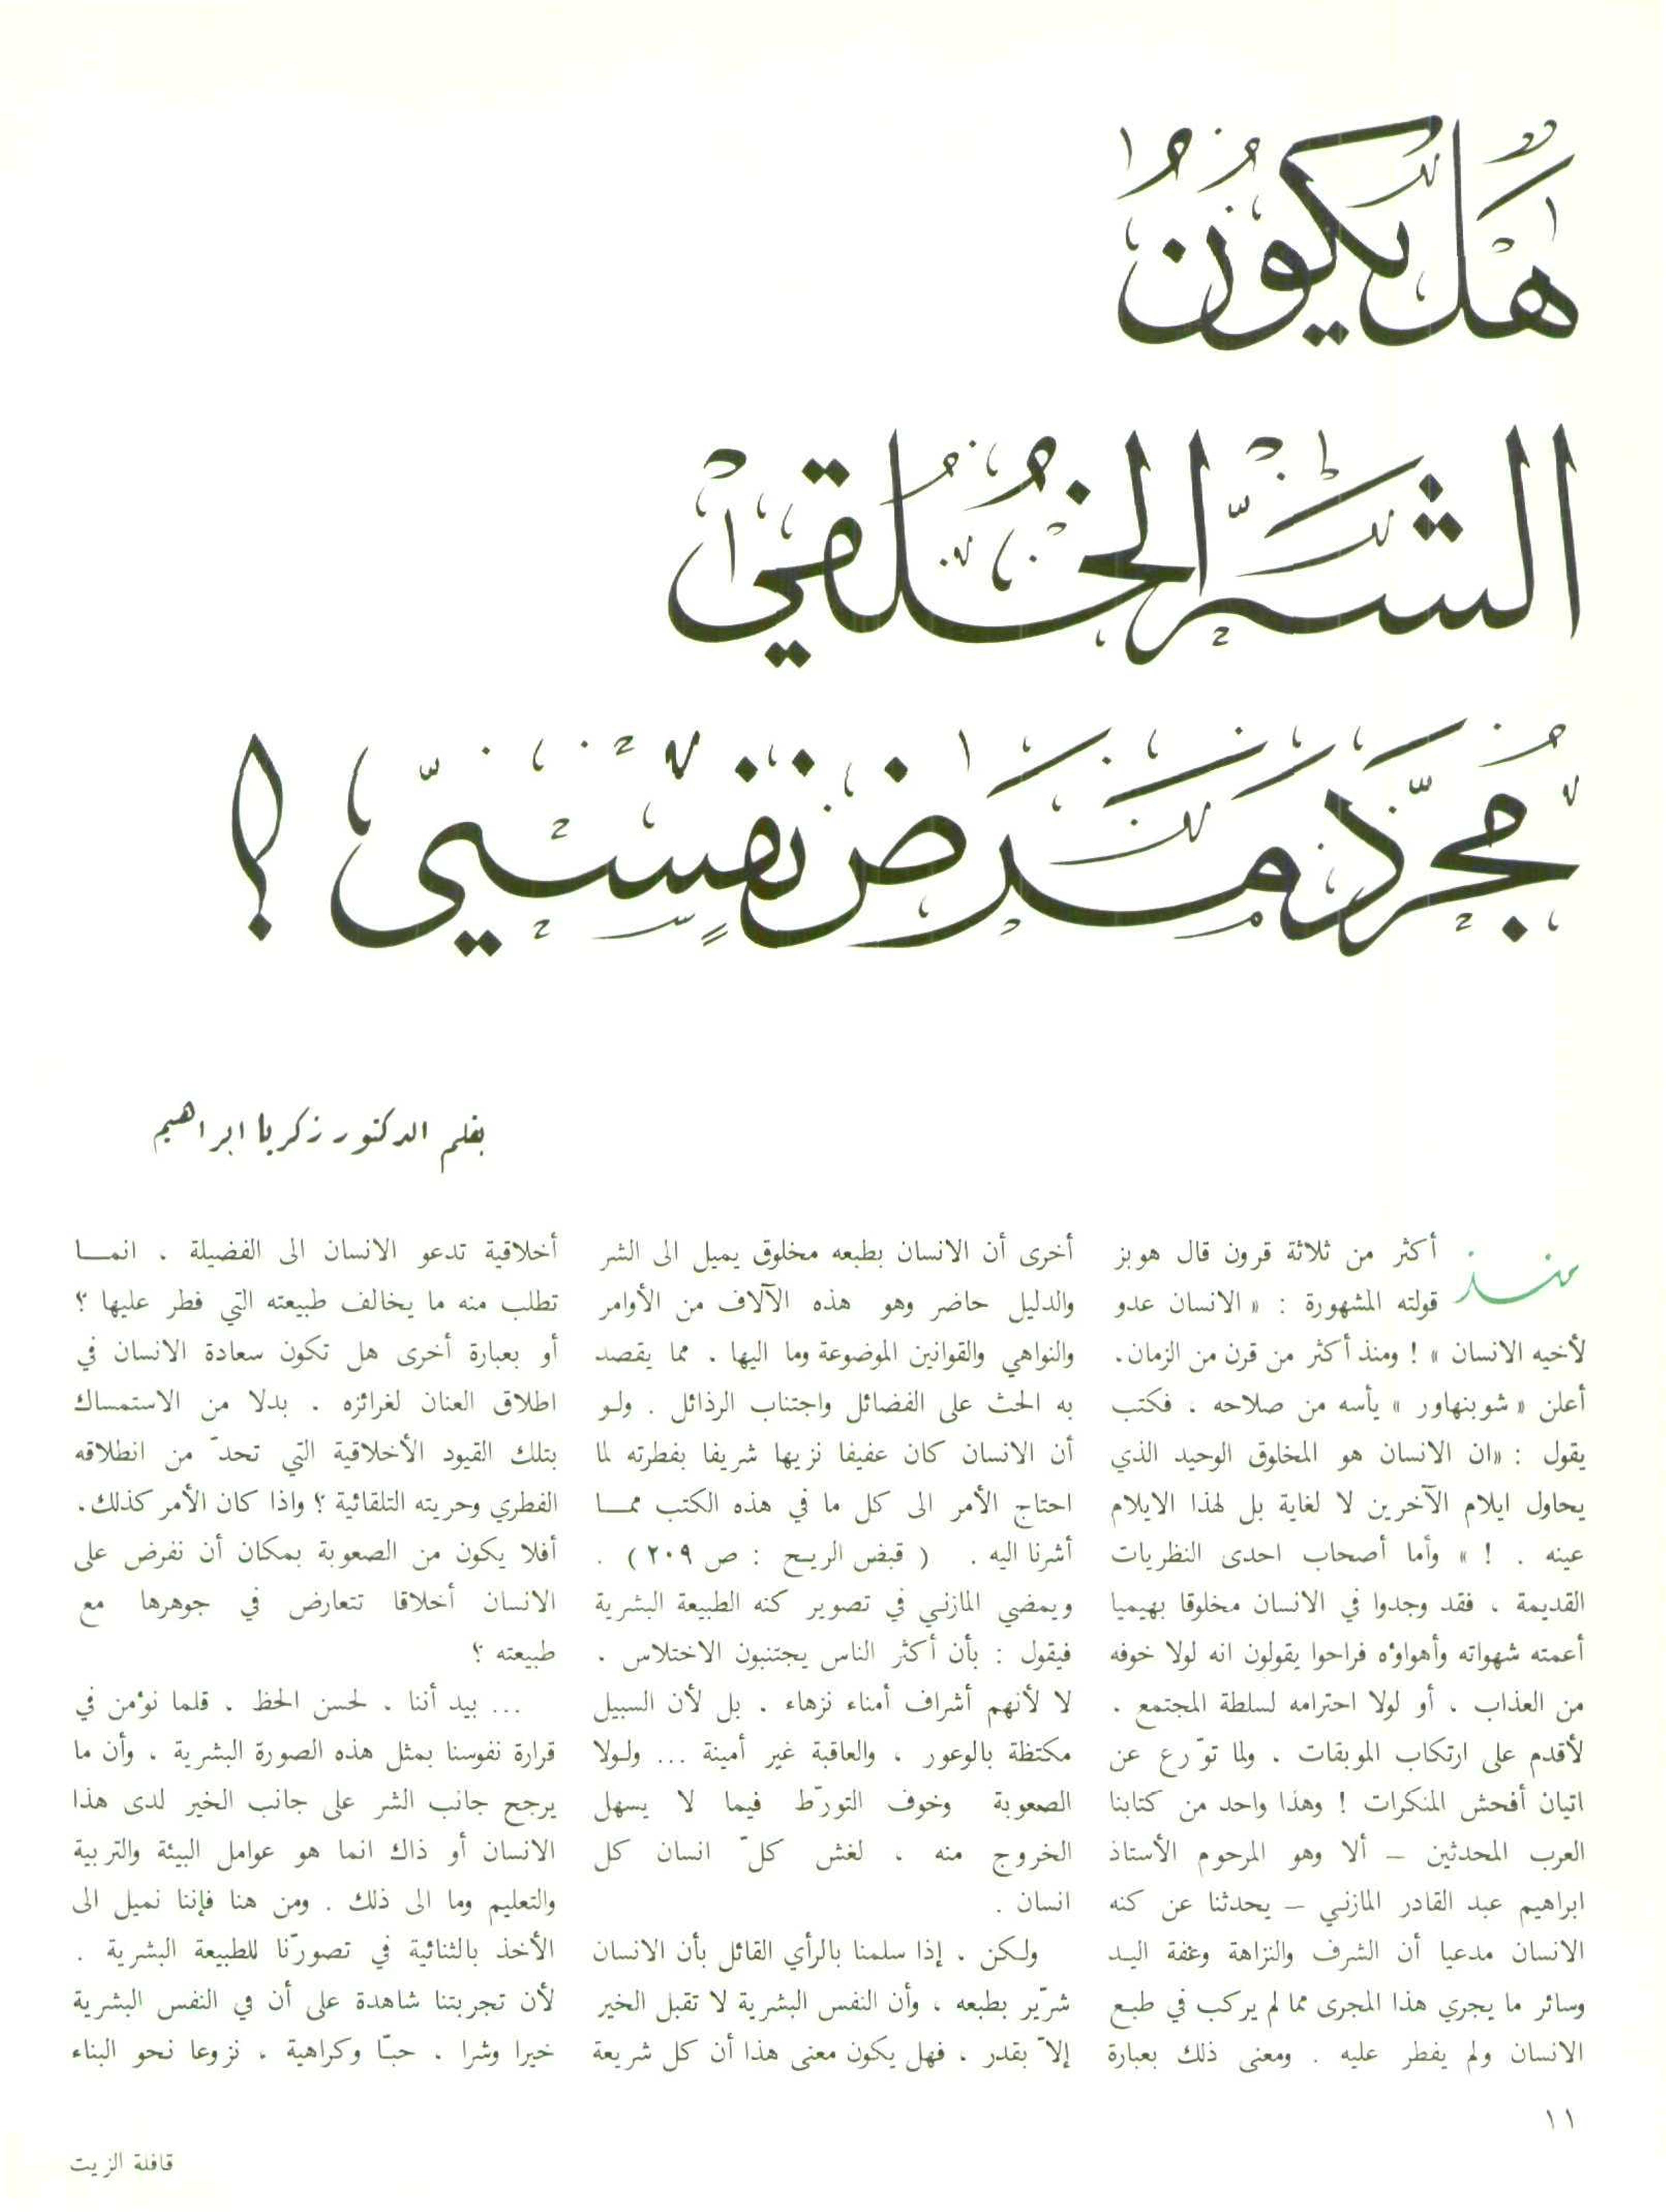 هَل يَكُونُ
الشَّرُّ الخُلُقي
مُجَرَّدَ مَرَضٍ نَفْسِيّ ؟
بقلم الدكتور زكريا ابراهيم
منذ أكثر من ثلاثة قرون قال هوبز
قولته المشهورة : « الانسان عدو
لأخيه الانسان » ! ومنذ أكثر من قرن من الزمان ،
أعلن « شوبنهاور » يأسه من صلاحه ، فكتب
يقول : «ان الانسان هو المخلوق الوحيد الذي
يحاول ايلام الآخرين لا لغاية بل لهذا الايلام
عينه . ! » وأما أصحاب احدى النظريات
القديمة ، فقد وجدوا في الانسان مخلوقا بهيميا
أعمته شهواته وأهواؤه فراحوا يقولون انه لولا خوفه
من العذاب ، أو لولا احترامه لسلطة المجتمع ،
لأقدم على ارتكاب الموبقات ، ولما تورّع عن
اتيان أفحش المنكرات ! وهذا واحد من كتابنا
العرب المحدثين – ألا وهو المرحوم الأستاذ
ابراهيم عبد القادر المازني – يحدثنا عن كنه
الانسان مدعيا أن الشرف والنزاهة وعفة اليد
وسائر ما يجري هذا المجرى مما لم يركب في طبع
الانسان ولم يفطر عليه . ومعنى ذلك بعبارة
أخرى أن الانسان بطبعه مخلوق يميل الى الشر
والدليل حاضر وهو هذه الآلاف من الأوامر
والنواهي والقوانين الموضوعة وما اليها ، مما يقصد
به الحث على الفضائل واجتناب الرذائل . ولو
أن الانسان كان عفيفا نزيها شريفا بفطرته لما
احتاج الأمر الى كل ما في هذه الكتب مما
أشرنا اليه . ( قبض الريح : ص ٢٠٩ ) .
ويمضي المازني في تصوير كنه الطبيعة البشرية
فيقول : بأن أكثر الناس يجتنبون الاختلاس ،
لا لأنهم أشراف أمناء نزهاء ، بل لأن السبيل
مكتظة بالوعور ، والعاقبة غير أمينة ... ولولا
الصعوبة وخوف التورّط فيما لا يسهل
الخروج منه ، لغش كلّ انسان كل
انسان .
ولكن ، إذا سلمنا بالرأي القائل بأن الانسان
شرّير بطبعه ، وأن النفس البشرية لا تقبل الخير
إلاّ بقدر ، فهل يكون معنى هذا أن كل شريعة
أخلاقية تدعو الانسان الى الفضيلة ، انما
تطلب منه ما يخالف طبيعته التي فطر عليها ؟
أو بعبارة أخرى هل تكون سعادة الانسان في
اطلاق العنان لغرائزه ، بدلا من الاستمساك
بتلك القيود الأخلاقية التي تحدّ من انطلاقه
الفطري وحريته التلقائية ؟ واذا كان الأمر كذلك ،
أفلا يكون من الصعوبة بمكان أن نفرض على
الانسان أخلاقا تتعارض في جوهرها مع
طبيعته ؟
... بيد أننا ، لحسن الحظ ، قلما نؤمن في
قرارة نفوسنا بمثل هذه الصورة البشرية ، وأن ما
يرجح جانب الشر على جانب الخير لدى هذا
الانسان أو ذاك انما هو عوامل البيئة والتربية
والتعليم وما الى ذلك . ومن هنا فإننا نميل الى
الأخذ بالثنائية في تصورّنا للطبيعة البشرية .
لأن تجربتنا شاهدة على أن في النفس البشرية
خيرا وشرا ، حبّا وكراهية ، نزوعا نحو البناء
١١
قافلة الزيت